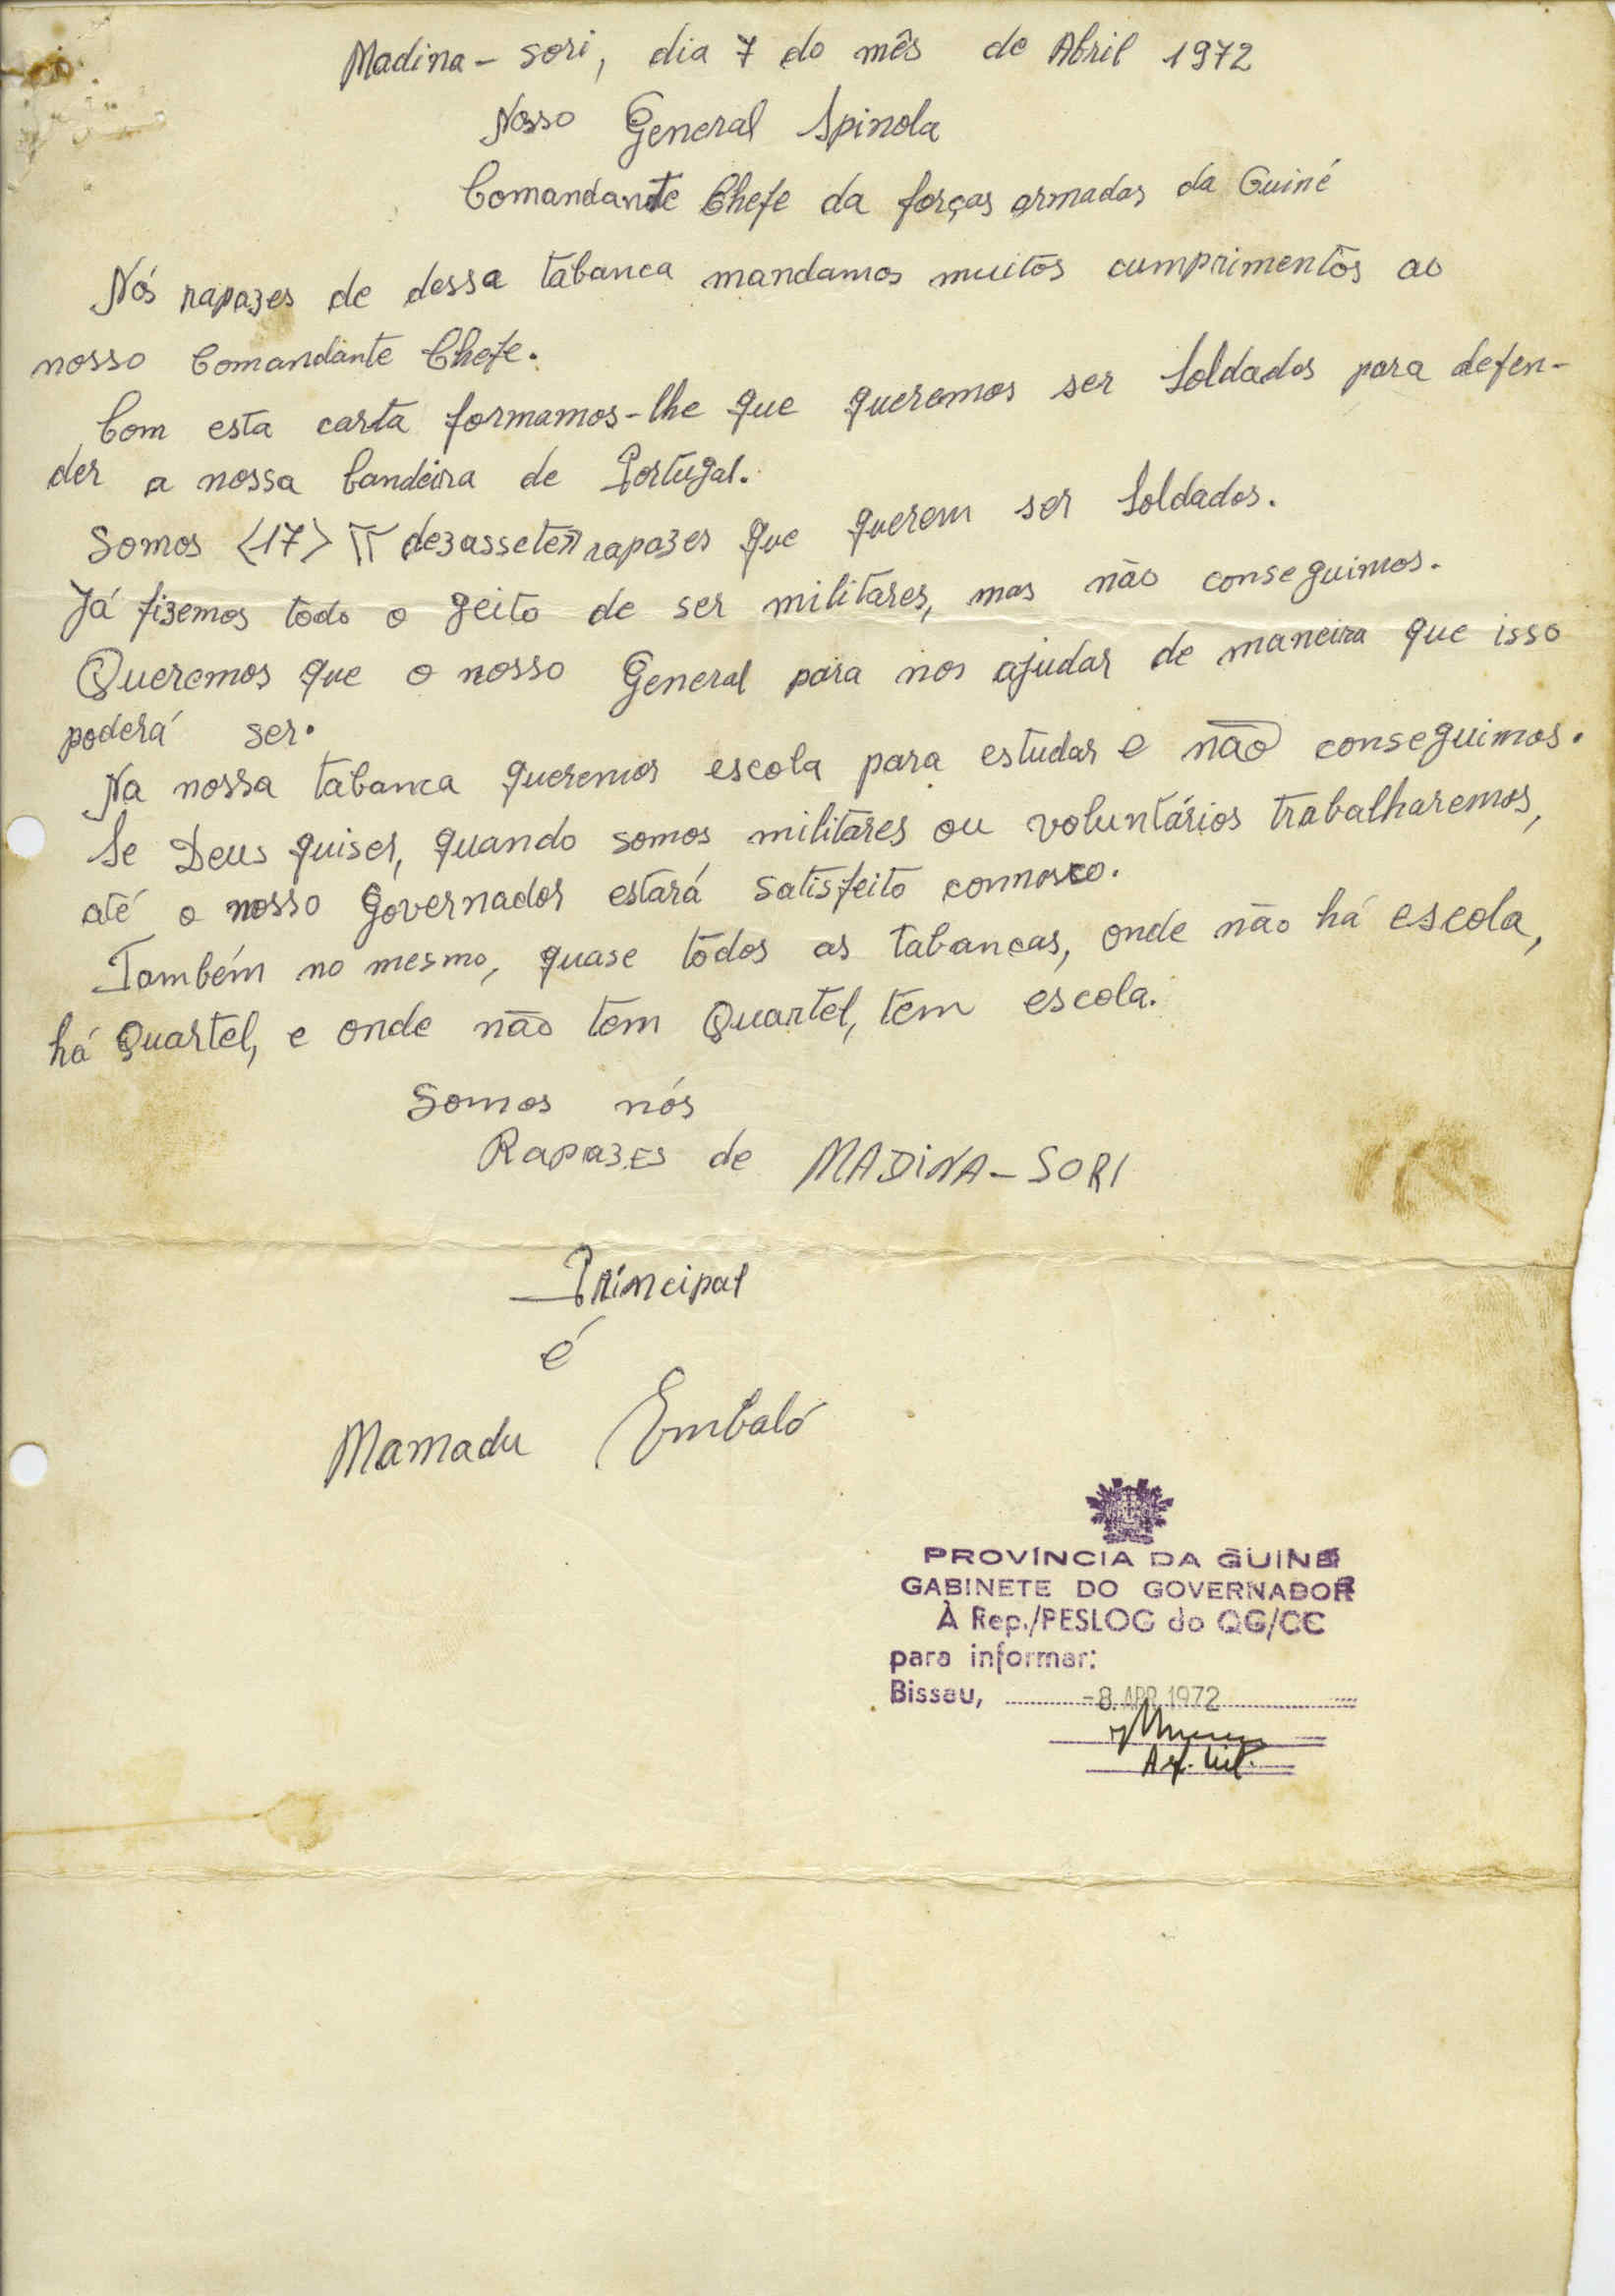 Madina - Sori, dia 7 do mês de Abril 1972
Nosso General Spinola
Comandante Chefe da forças armadas da Guiné
Nós rapazes de dessa tabanca mandamos muitos cumprimentos ao
nosso Comandante Chefe.
Com esta carta formamos-lhe que queremos ser Soldados para defen-
der a nossa bandeira de Portugal.
Somos <17> " dezassete" rapazes que querem ser Soldados.
Já fizemos todo o geito de ser militares, mas não conseguimos.
Queremos que o nosso General para nos ajudar de maneira que isso
poderá ser.
Na nossa tabanca queremos escola para estudar e não conseguimos.
Se Deus quiser, quando somos militares ou voluntários trabalharemos,
até o nosso Governador estará satisfeito connosco.
Também no mesmo, quase todos as tabancas, onde não há escola,
há Quartel, e onde não tem Quartel, tem escola.
Somos nós
Rapazes de MADINA - SORI
Principal
é
Mamadu Embaló
PROVÍNCIA DA GUINÉ
GABINETE DO GOVERNADOR
À Rep./PESLOG do QG/CC
para informar:
Bissau, -8. APR 1972